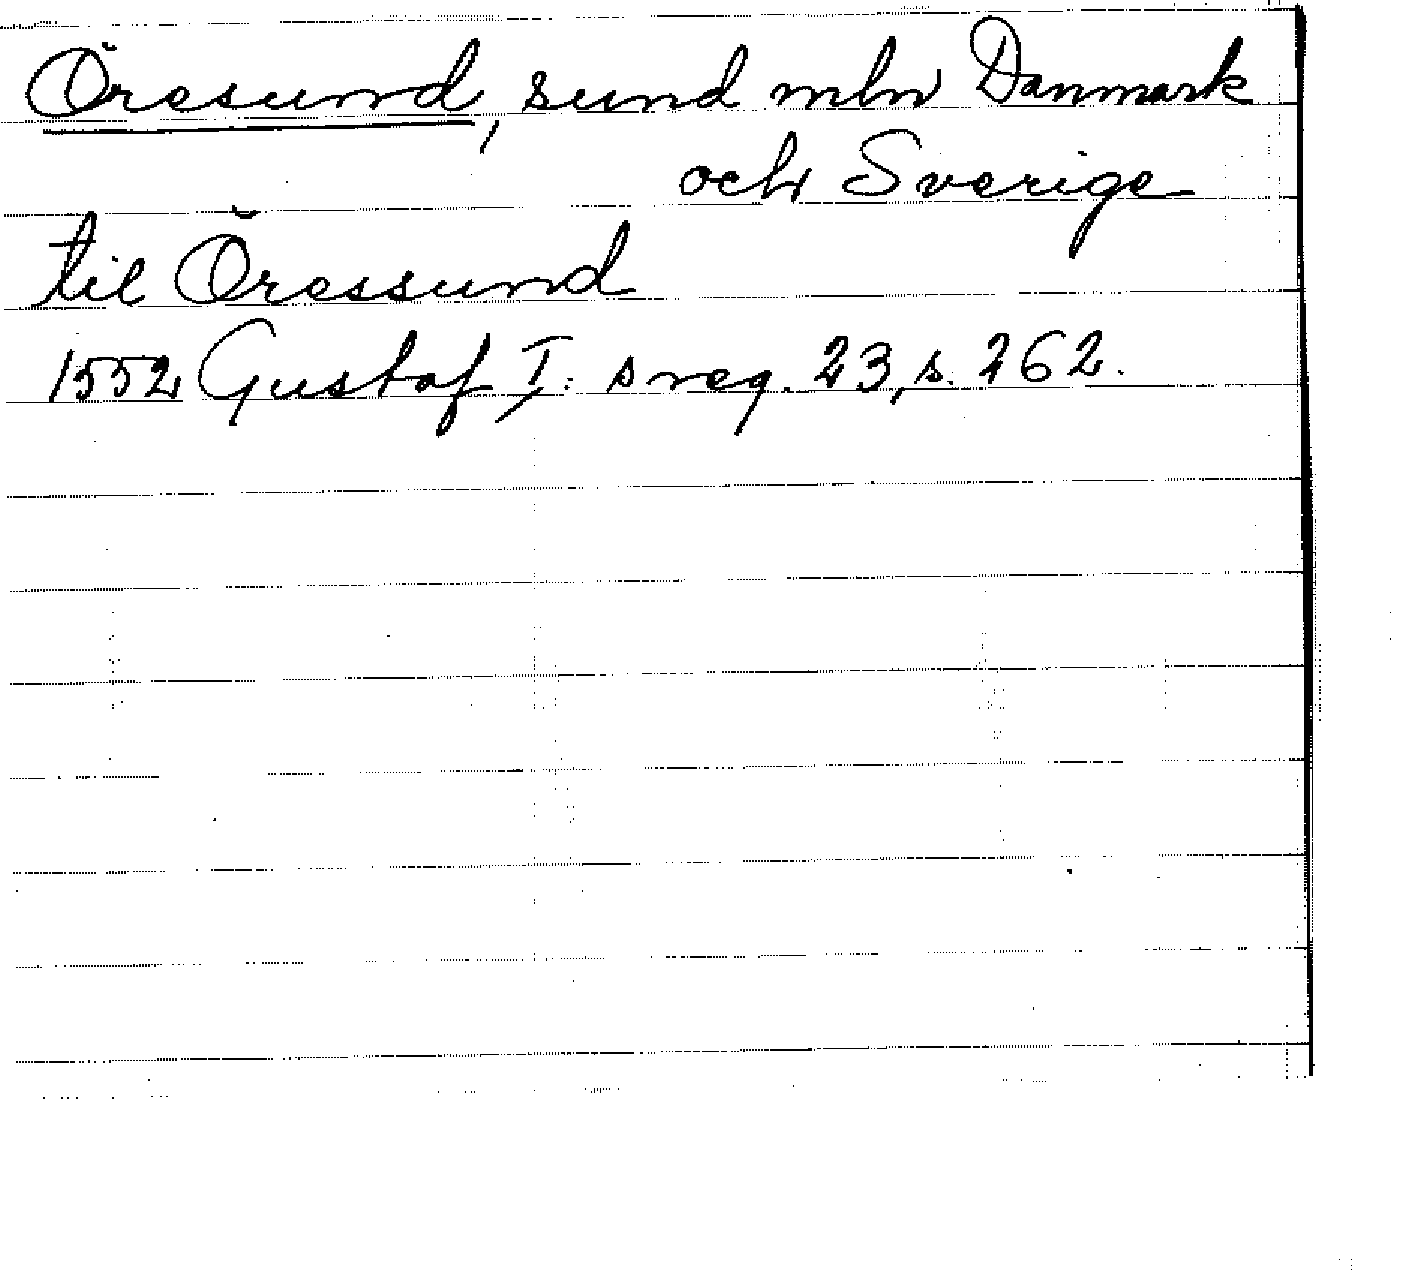 Öresund, sund mln Danmark
och Sverige
til Öressund
1552 Gustaf I: s reg. 23, s. 262.